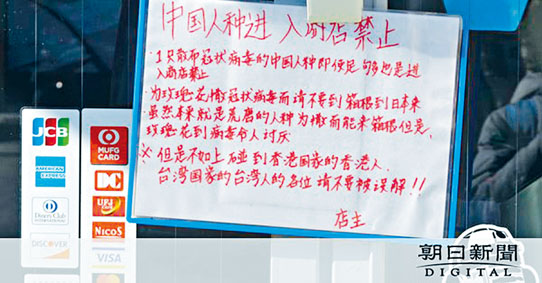 中国人种进 入商店禁止
・1只散布冠状病毒的中国人种即使足够也是进
入商店禁止
・为玫瑰花撒冠状病毒而请不要到箱根到日本来
虽然本来就是荒磨的人种为撒而能来箱根但是、
玫瑰花到病毒令人讨厌
※但是不如上碰到香港国家的香港人、
台湾国家的台湾人的各位请不要被误解!!
店主
JCB
MUFG
CARD
AMERICAN
EXPRESS
DC
Diners Club
INTERNATIONAL
UFJ
Card
DISCOVER
NICOS
VISA
朝日新聞
DIGITAL